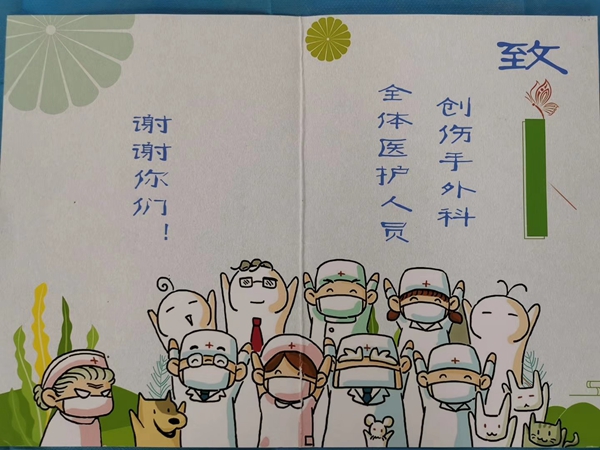 致
创伤手外科
全体医护人员
谢谢你们！